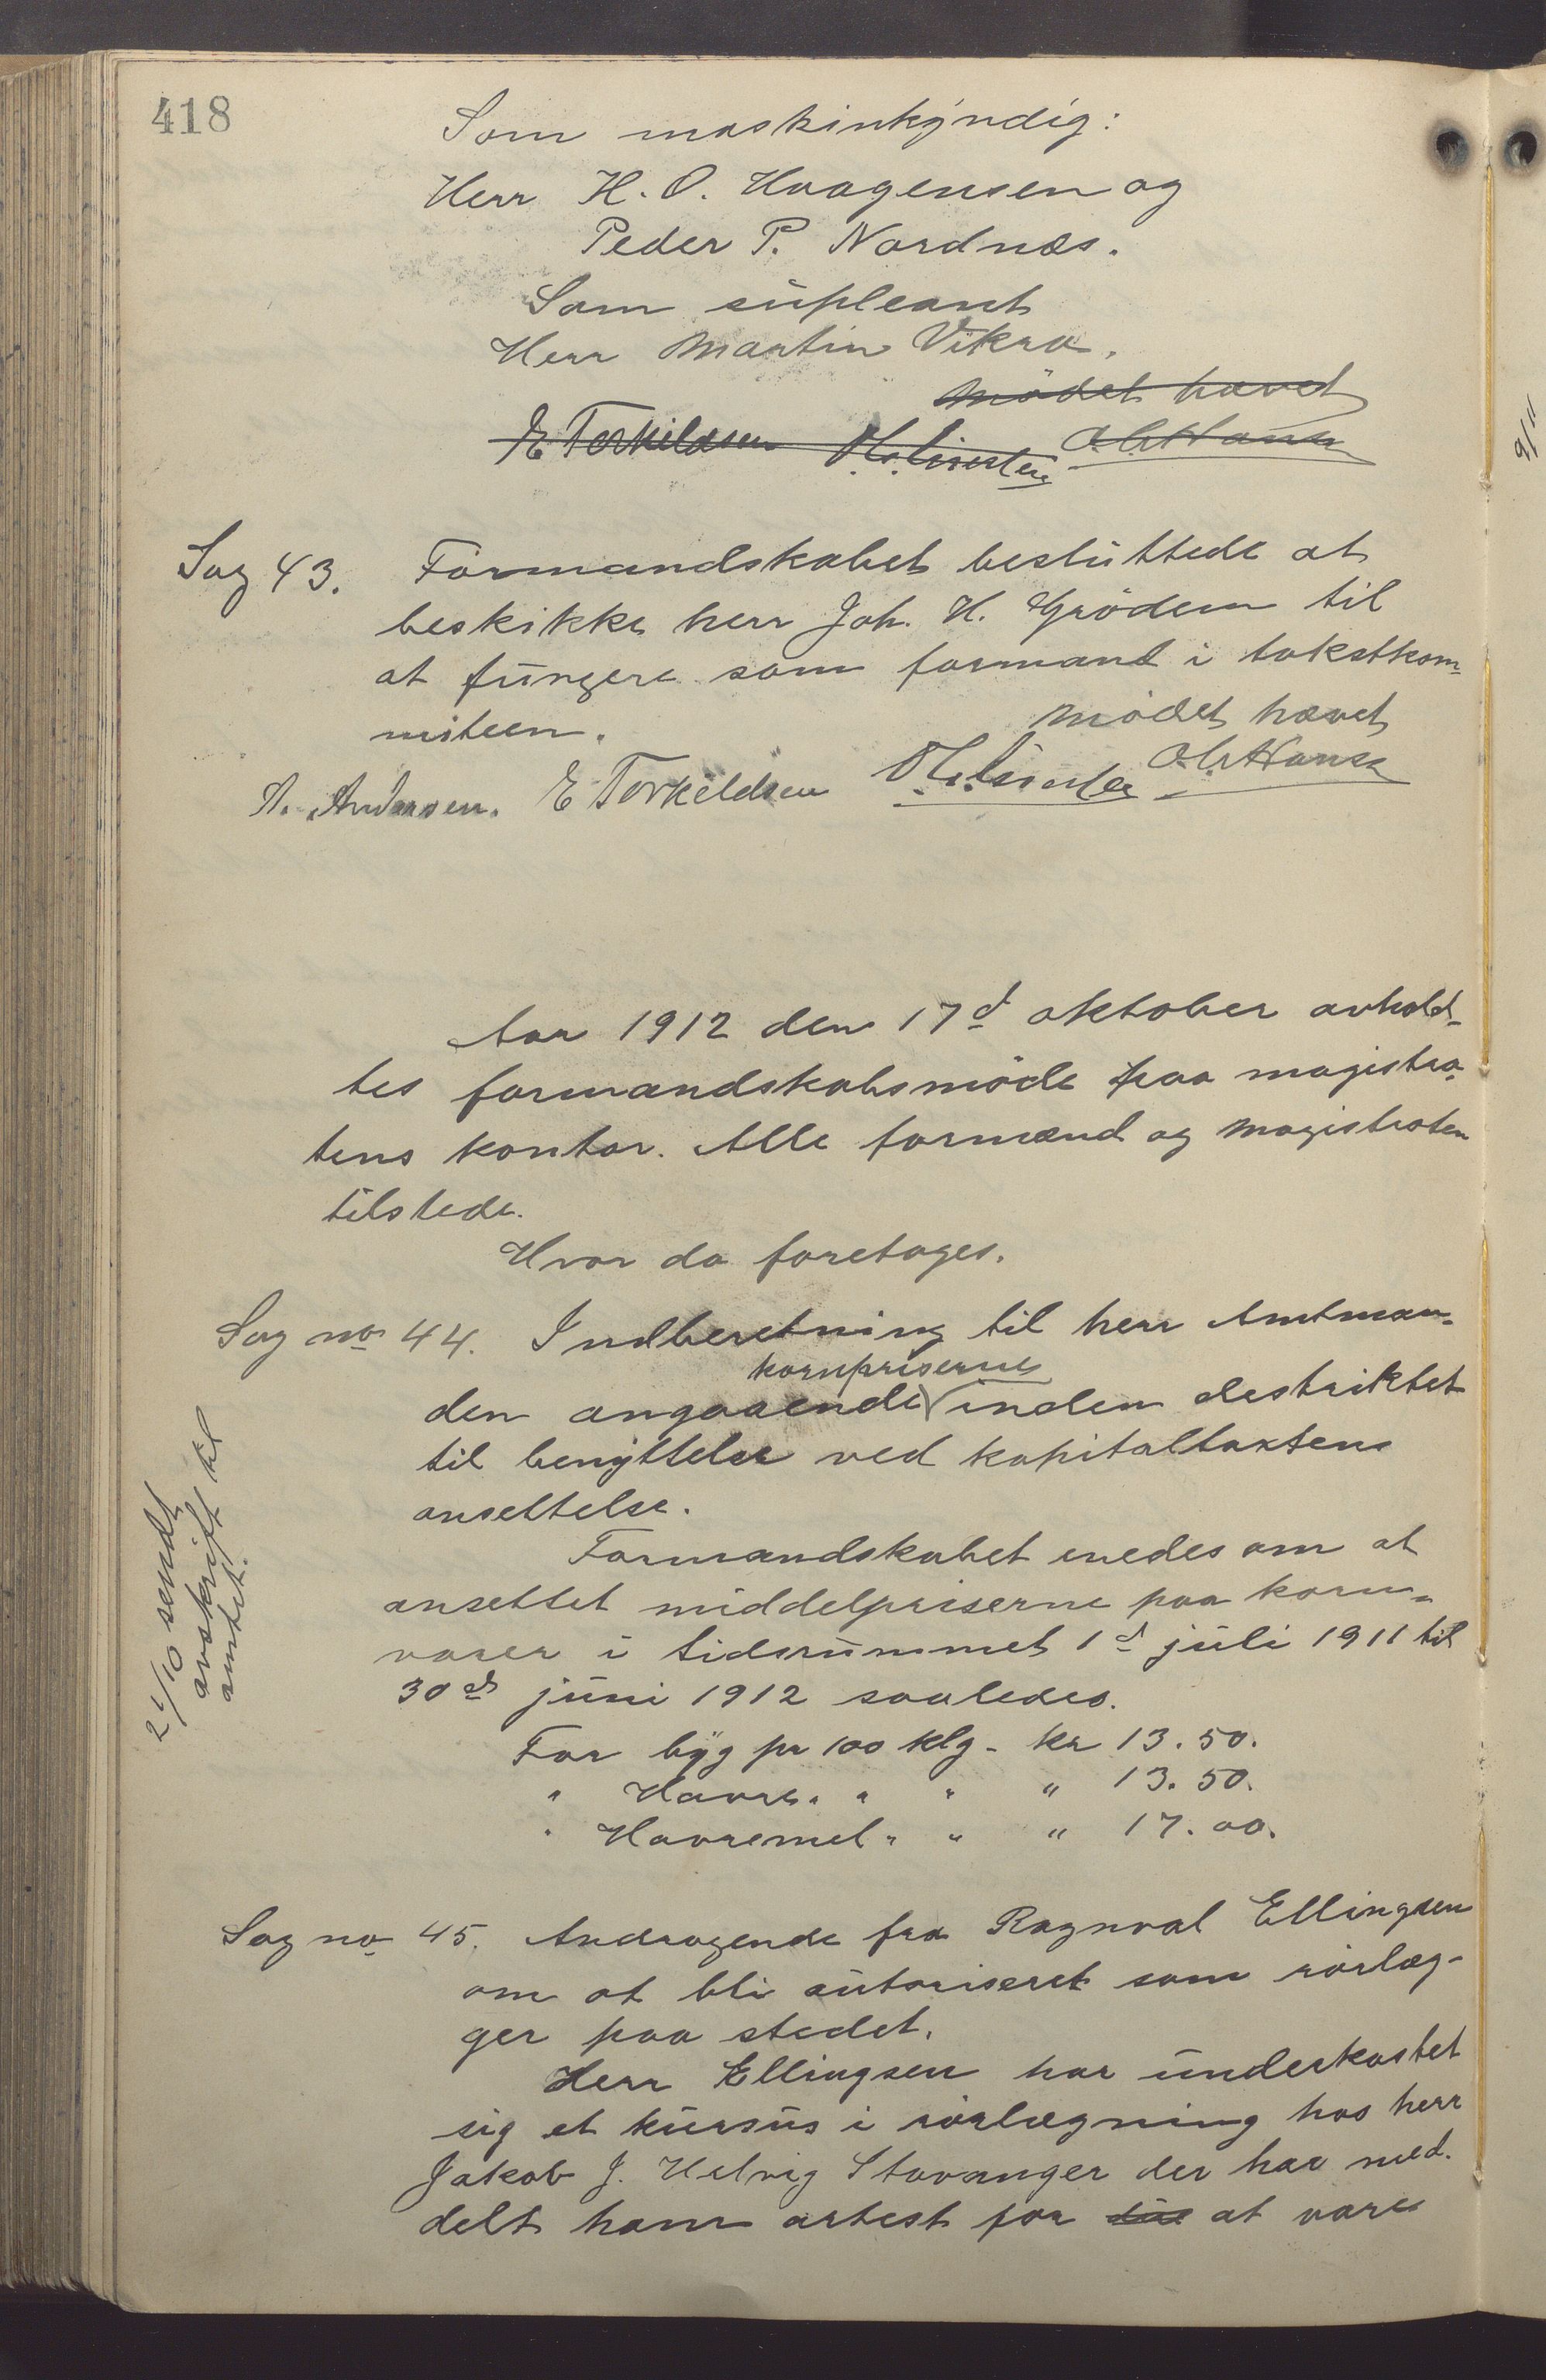 418
Som maskinkyndig:
Herr H. O. Haagensen og
Peder P. Nordnæs.
Som supleant
Herr Martin Vikra.
Mödet hævet
E Torkildsen
Sag 43. Formandskabet besluttede at
beskikke herr Joh. H. Grödem til
at fungere som formand i takstkom-
miteen.
Mödet hævet
A. Andersen. E Torkildsen
Aar 1912 den 17d oktober avhold-
tes formandskabsmöde paa magistra-
tens kontor. Alle formænd og magistraten
tilstede.
Hvor da foretages.
Sag no 44. Indberetning til herr Amtman-
den angaaende kornpriserne inden destriktet
til benyttelse ved kapitaltaxtens
ansettelse.
Formandskabet enedes om at
ansettet middelpriserne paa korn-
varer i tidsrummet 1d juli 1911 til
30d juni 1912 saaledes.
For byg pr 100 klg - kr 13.50.
" Havre " " " " 13.50.
" Havremel " " " 17.00.
21/10 sendt
avskrift til
amtet.
Sag no 45. Andragende fra Ragnval Ellingsen
om at bli autoriseret som rörlæg-
ger paa stedet.
Herr Ellingsen har underkastet
sig et kursus i rörlægning hos herr
Jakob J. Helvig Stavanger der har med-
delt ham artest for at være